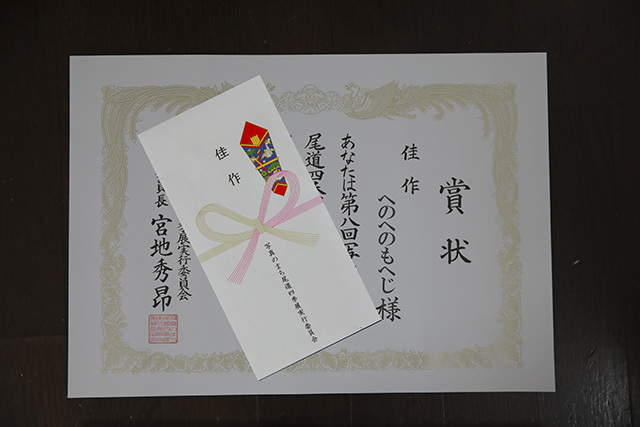 賞状
佳作
へのへのもへじ様
あなたは第八回写
尾道四季
展実行委員会
員長 宮地秀昂
佳作
写真のまち尾道四季展実行委員会